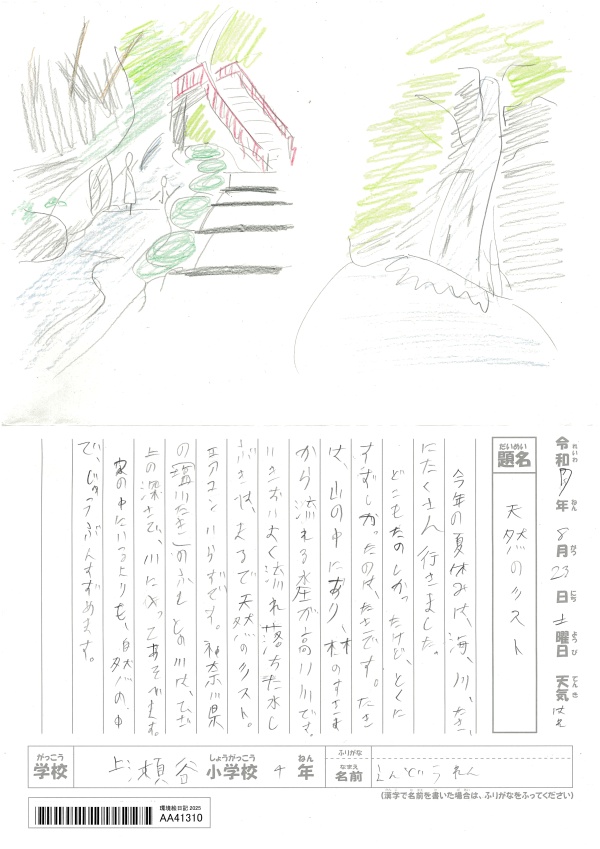 令和7年8月23日土曜日 天気はれ
題名 天然のミスト
今年の夏休みは、海、川、たき、
にたくさん行きました。
どこもたのしかったけど、とくに
すずしかったのは、たきです。たき
は、山の中にあり、林のすきま
から流れる水が高いです。
いきおいよく流れ落ちた水し
ぶきは、まるで天然のミスト。
エアコンいらずです。神奈川県
の「　　たき」のふもとの川は、ひざ
上の深さで、川に入ってあそべます。
家の中にいるよりも、自然の中
で、じゅうぶんすずめます。
学校 上瀬谷小学校 4年
名前 えんどうれん
(漢字で名前を書いた場合は、ふりがなをふってください)
環境絵日記 2025
AA41310